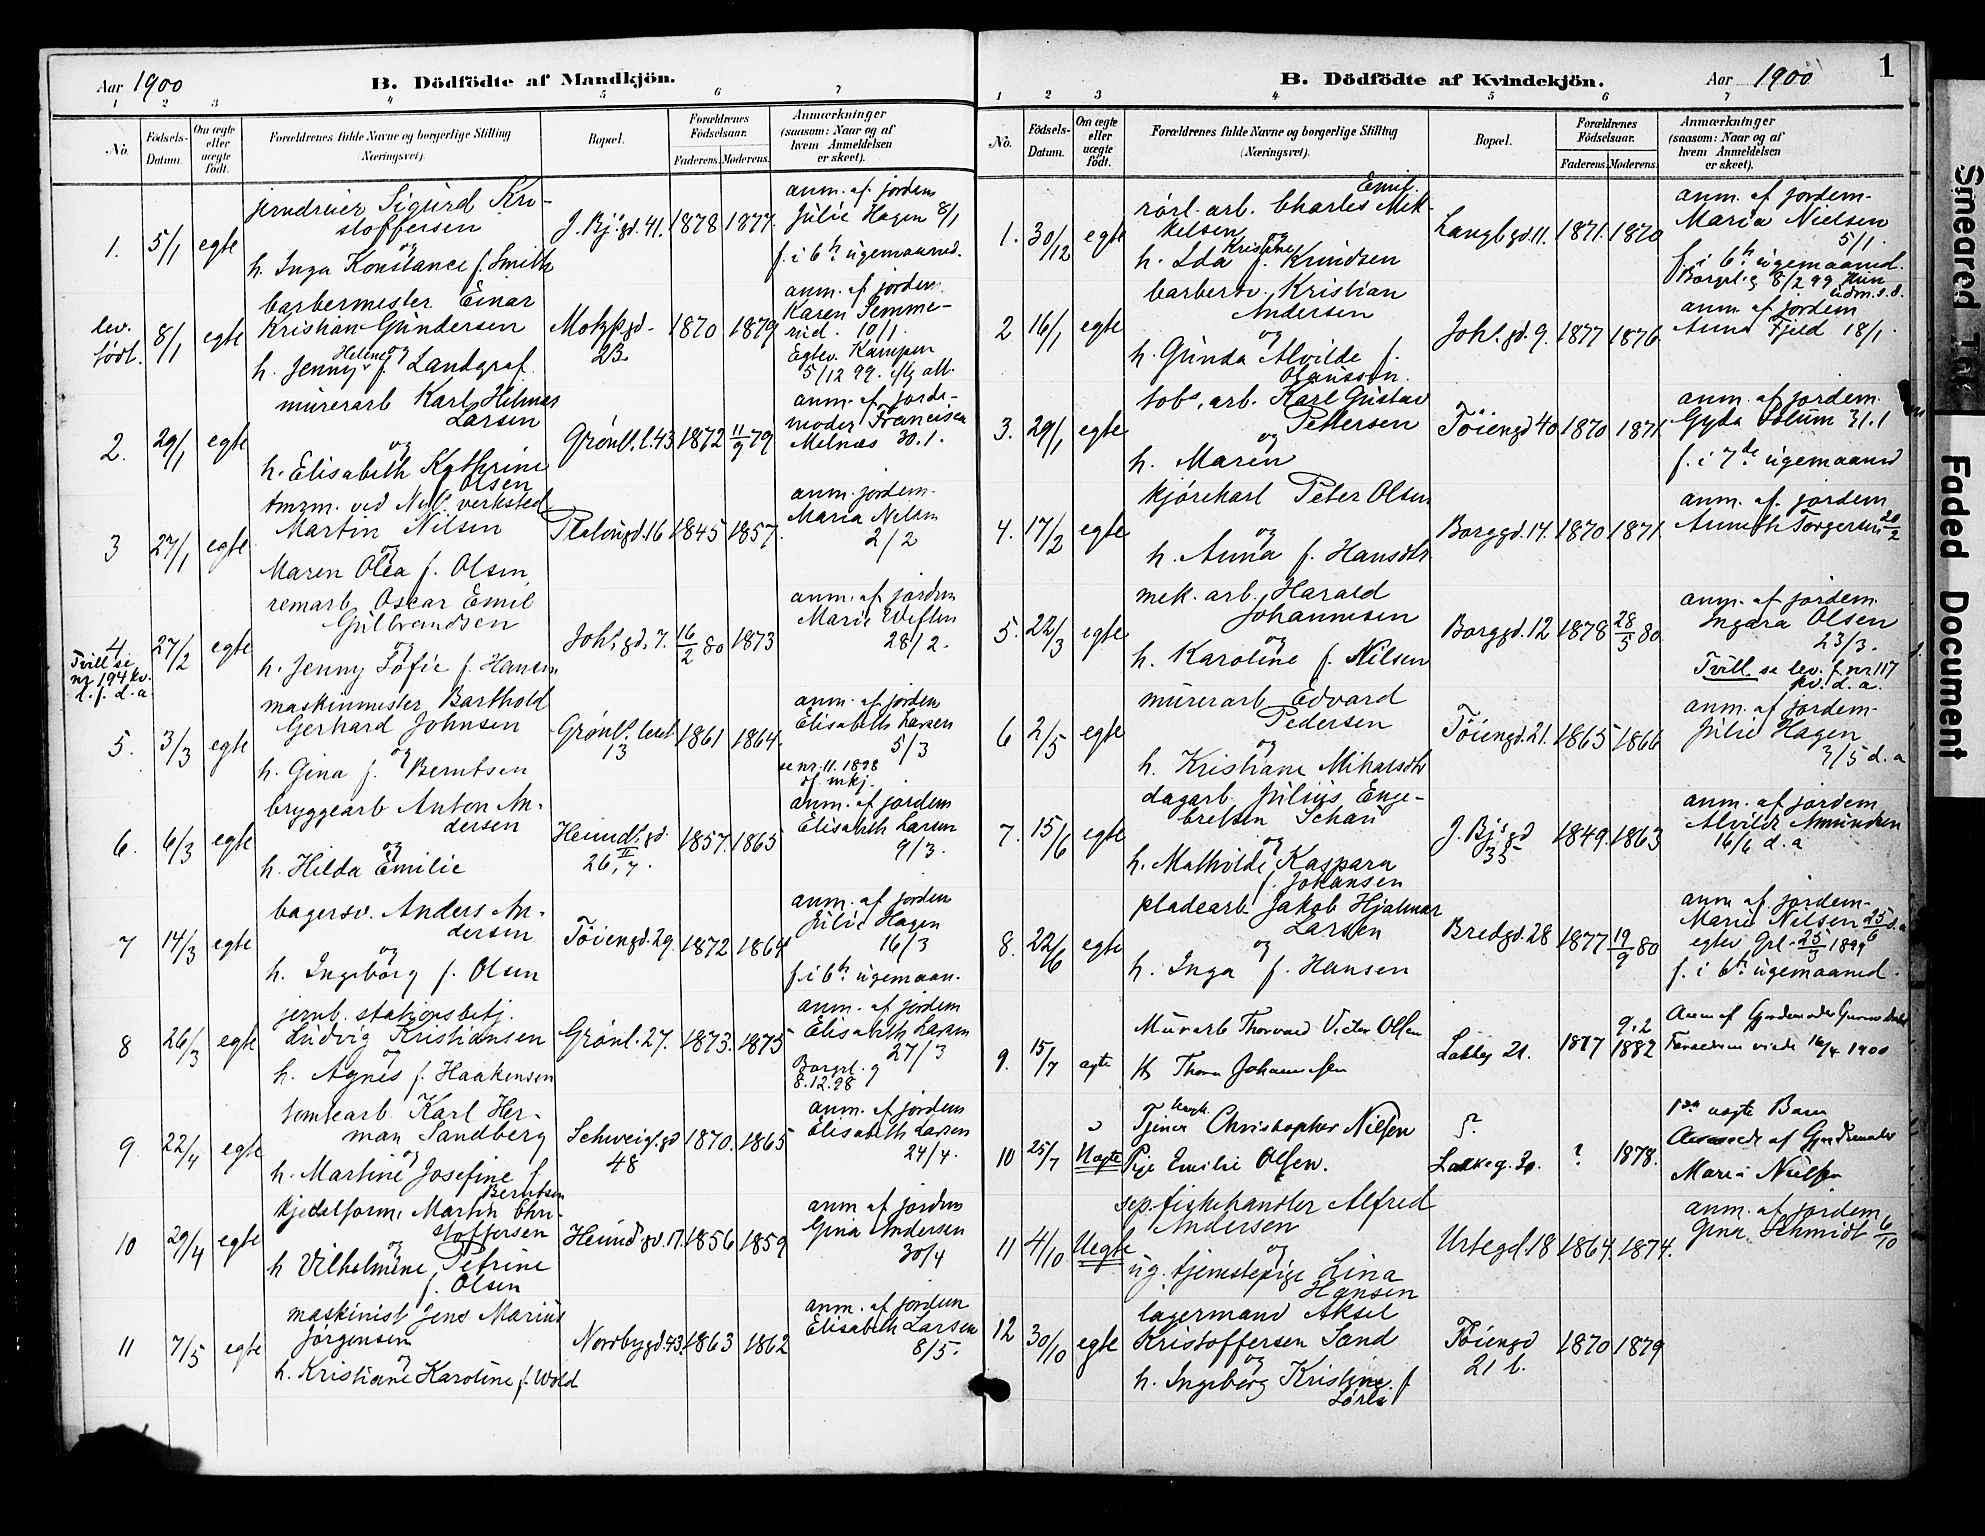 Aar 1900
B. Dödfödte af Mandkjön.
1 2 3 4 5 6 7
No.
Födsels-Datum.
Om ægte eller uægte födt.
Forældrenes fulde Navne og borgerlige Stilling
(Næringsvei).
Bopæl.
Forældrenes Födselsaar.
Faderens. Moderens.
Anmærkninger
(saasom: Naar og af
hvem Anmeldelsen
er skeet).
jerndreier Sigurd Kri-
stoffersen
og
h. Inga Konstance f. Smith
1. 5/1 egte
J. Bj.s gd. 41. 1878 1877.
anm. af jordem
Julie Hagen 8/1
f. i 6te ugemaaned.
barbermester Einar
Kristian Gundersen
og
h. Jenny Helene f. Landgraf
lev. født. 8/1 egte
Motzf.gd. 23. 1870 1879
anm. af jordem.
Karen Semme-
rud. 10/1.
Egtev. Kampen
5/12 99.
murerarb Karl Hilmas
Larsen
og
h. Elisabeth Kathrine
Olsen
2. 29/1 egte
Grønl.l. 43 1872 11/9 79
anm. af jorde-
moder Francisca
Melnæs 30.1.
tmzm. ved Nyl. verksted
Martin Nilsen
og
Maren Olea f. Olsen
3 27/1 egte
Platougd. 16 1845 1857.
anm. jordem.
Maria Nelsen
2/2
remarb. Oscar Emil
Gulbrandsen
og
h. Jenny Sofie f. Hansen
4. 27/2 egte
Tvill se
nr 194 kv.
l. f. d. a.
Joh.s gd. 7. 16/2 80 1873
anm. af jordem
Marie Wiflen
28/2.
maskinmester Barthold
Gerhard Johnsen
og
h. Gina f. Berntsen
5. 3/3 egte
Grønl.s leret
13 1861 1864.
anm. af jordem
Elisabeth Larsen
5/3
se nr. 11. 1898
df. mkj.
bryggearb Anton An-
dersen
og
h. Hilda Emilie
6. 6/3 egte
Heimd.s gd.
26, II 7 1857. 1865
anm. af jordem
Elisabeth Larsen
9/3.
bagersv. Anders An-
dersen
og
h. Ingeborg f. Olsen
7 14/3 egte
Tøiengd. 29. 1872 1864
anm. af jordem
Julie Hagen
16/3
f. i 6te ugemaan.
jernb. stationsbetj.
Ludvig Kristiansen
og
h. Agnes f. Haakensen
8 26/3 egte
Grønl. 27. 1873. 1875
anm. af jordem
Elisabeth Larsen
27/3
Borgrl. g
8.12.98
tomtearb. Karl Her-
man Sandberg
og
h. Martine Josefine f
Berntsen
9 22/4 egte
Schweig.s gd
48 1870. 1865
anm. af jordem
Elisabeth Larsen
24/4.
kjedelform. Martin Chri-
stoffersen
og
h Vilhelmine Petrine
f. Olsen
10 29/4 egte
Heimd.s gd. 17. 1856 1859
anm af jordem
Gina Andersen
30/4
maskinist Jens Marius
Jørgensen
og
h. Kristiane Karoline f. Wold
11 7/5 egte
Nordbygd. 43. 1863 1862
anm. af jordem
Elisabeth Larsen
8/5.
B. Dödfödte af Kvindekjön.
Aar 1900
1
1 2 3 4 5 6 7
No.
Födsels-Datum.
Om ægte eller uægte födt.
Forældrenes fulde Navne og borgerlige Stilling
(Næringsvei).
Bopæl.
Forældrenes Födselsaar.
Faderens. Moderens.
Anmærkninger
(saasom: Naar og af
hvem Anmeldelsen
er skeet).
rørl. arb. Charles Emil Mik-
kelsen
og
h. Ida Kristine f. Knudsen
1. 30/12 egte
Langbgd. 11. 1871. 1870
anm. af jordem-
Maria Nielsen
5/1.
f. i 6te ugemaaned.
Borgrl. g 8/2 99 Hun
udm. s. d.
barbersv. Kristian
Andersen
og
h. Gunda Alvilde f.
Olausson.
2 16/1 egte
Joh.s gd. 9. 1877 1876
anm. af jordem
Anna Fjeld 18/1.
tobs. arb. Karl Gustav
Pettersen
og
h. Maren
3. 29/1 egte
Tøiengd 40 1870 1871.
anm. af jordem.
Gyda Solum 31.1
f. i 7de ugemaaned
kjørekarl Peter Olsen
og
h. Anna f. Hansdtr
4. 17/2 egte
Borggd. 14. 1870 1871.
anm. af jordem
Anneth Torgersen 20/2
mek. arb. Harald
Johannesen
og
h. Karoline f. Nilsen
5. 22/3 egte
Borggd. 12 1878 28/5 80.
anm. af jordem
Ingara Olsen
23/3.
Tvill se lev. f. nr 117
kv. d. a.
murerarb Edvard
Pedersen
og
h. Kristiane Mikalsdtr
6 2/5 egte
Tøiengd. 21. 1865 1866
anm. af jordem-
Julie Hagen
3/5 d. a
dagarb. Julius Enge-
bretsen Schau
og
h. Mathilde Kaspara
f. Johansen
7. 15/6 egte
J. Bj.s gd
35 1849. 1863
anm. af jordem
Alvilde Amundsen
16/6 d. a
pladearb Jakob Hjalmar
Larsen
og
h. Inga f. Hansen
8. 22/6 egte
Bredgd. 28 1877 19/9 80
anm af jordem-
Marie Nilsen 25/6 d. a
egtev Grl. 25/3 1899
f. i 6te ugemaaned.
Murarb Thorvald Victor Olsen
H Thora Johannessen
9. 15/7 ægte
Lakkeg 21. 1877 9.2 1882
Anm af Gjordemoder
Forældrene viede 16/4 1900
Tjener Ungk. Christopher Nielsen
Pige Emilie Olsen.
10 25/7 Uægte
?
Lakkeg. 30. ? 1878.
1ste uægte Barn
Anmeldt af Gjordemoder
Maria Nielsen
sep. fiskehandler Alfred
Andersen
og
ug. tjenstepige Lina
Hansen
11 4/10 Uegte
Urtegd. 18 1864. 1874.
anm. af jordem
Gina Schmidt 6/10
lagermand Aksel
Kristoffersen Sand
og
h. Ingeborg Kristine f
Sørli
12 30/10 egte
Tøiengd
21 b. 1870 1879
Smeared Ink
Faded Document